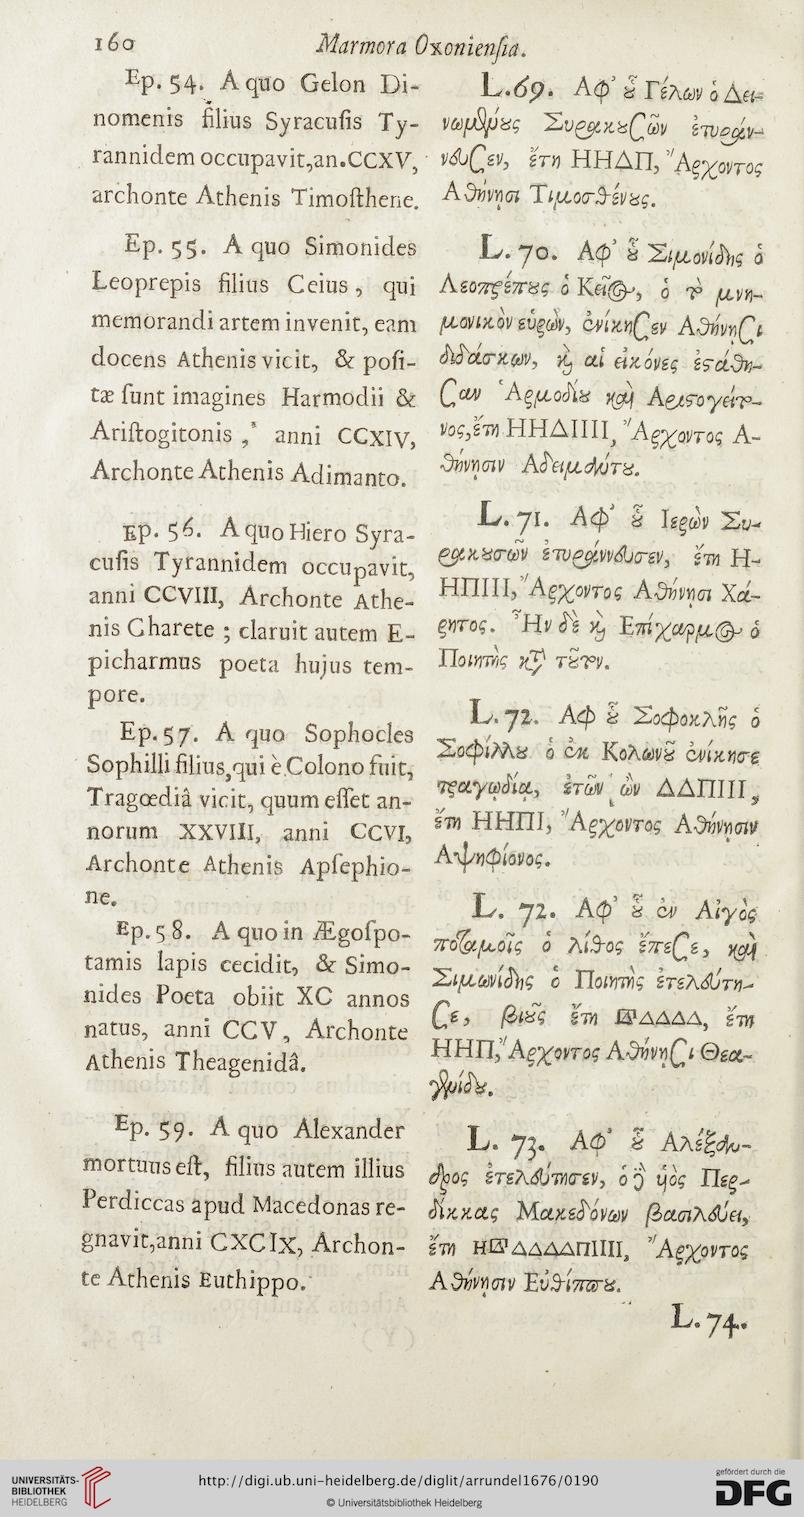 160 Marmora Oxoniensia.
Ep. 54. A quo Gelon Di-
nomenis filius Syracusis Ty-
rannidem occupavit,an.CCXV,
archonte Athenis Timosthene.
Ep. 55. A quo Simonides
Leoprepis filius Ceius, qui
memorandi artem invenit, eam
docens Athenis vicit, & posi-
tæ sunt imagines Harmodii &
Aristogitonis, anni CCXIV,
Archonte Athenis Adimanto.
Ep. 56. A quo Hiero Syra-
cusis Tyrannidem occupavit,
anni CCVIII, Archonte Athe-
nis Charete ; claruit autem E-
picharmus poeta hujus tem-
pore.
Ep. 57. A quo Sophocles
Sophilli filius,qui è Colono fuit,
Tragœdiâ vicit, quum esset an-
norum XXVIII, anni CCVI,
Archonte Athenis Apsephio-
ne.
Ep. 58. A quo in Ægospo-
tamis lapis cecidit, & Simo-
nides Poeta obiit XC annos
natus, anni CCV, Archonte
Athenis Theagenidâ.
Ep. 59. A quo Alexander
mortuus est, filius autem illius
Perdiccas apud Macedonas re-
gnavit,anni CXCIX, Archon-
te Athenis Euthippo.
L.69. Αφ' ȣ̃ Γέλων ὁ Δει-
νωμένȣς Συρρακȣσῶν ἐτυράν-
νευσεν, ἔτη ΗΗΔΠ, Ἄρχοντος
Αθήνησι Τιμοσθένȣς.
L. 70. Αφ' ȣ̃ Σιμονίδης ὁ
Λεοπρέπȣς ὁ Κεῖος, ὁ τὸ μνη-
μονικὸν εὑρὼν, ἐνίκησεν Αθήνησι
διδάσκων, καὶ αἱ εἰκόνες ἐστάθη-
σαν Ἁρμοδίȣ καὶ Αριστογείτο-
νος,ἔτη ΗΗΔΙΙΙΙ, Ἄρχοντος Α-
θήνησιν Αδειμάντȣ.
L. 71. Αφ' ȣ̃ Ιερὼν Συ-
ρακȣσῶν ἐτυράννευσεν, ἔτη Η-
ΗΠΙΙΙ, Ἄρχοντος Αθήνησι Χά-
ρητος. Ἦν δὲ καὶ Επίχαρμος ὁ
Ποιητὴς κατὰ τȣ̃τον.
L. 72. Αφ ȣ̃ Σοφοκλῆς ὁ
Σοφίλλȣ ὁ ἐκ Κολωνȣ̃ ἐνίκησε
τραγῳδίᾳ, ἐτῶν ὢν ΔΔΠΙΙΙ,
ἔτη ΗΗΠΙ, Ἄρχοντος Αθήνησιν
Αψηφίονος.
L. 72. Αφ' ȣ̃ ἐν Αἰγὸς
ποταμοῖς ὁ λίθος ἔπεσε, καὶ
Σιμωνίδης ὁ Ποιητὴς ἐτελεύτη-
σε, βιȣ̀ς ἔτη 𐅄ΔΔΔΔ, ἔτη
ΗΗΠ, Ἄρχοντος Αθήνησι Θεα-
γενίδȣ.
L. 73. Αφ' ȣ̃ Αλέξαν-
δρος ἐτελεύτησεν, ὁ δὲ υἱὸς Περ-
δίκκας Μακεδόνων βασιλεύει,
ἔτη Η𐅄ΔΔΔΔΠΙΙΙΙ, Ἄρχοντος
Αθήνησιν Εὐθίππȣ.
L. 74.
UNIVERSITÄTS-
BIBLIOTHEK
HEIDELBERG
http://digi.ub.uni-heidelberg.de/diglit/arrundel1676/0190
© Universitätsbibliothek Heidelberg
gefördert durch die
DFG